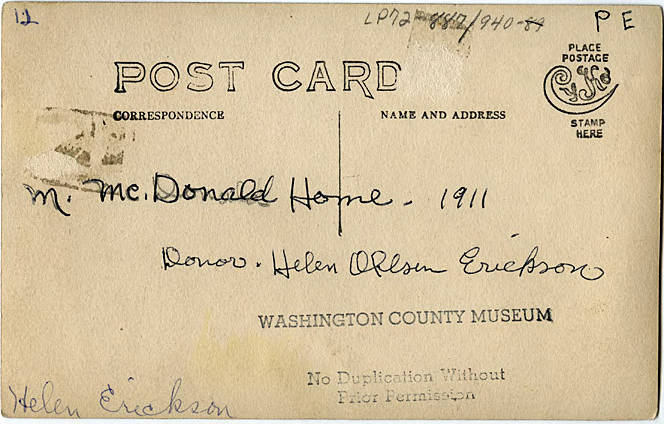 12
LP72 887/940-89
P E
POST CARD
PLACE
POSTAGE
CyKo
STAMP
HERE
CORRESPONDENCE
NAME AND ADDRESS
M. Mc. Donald Home - 1911
Donor - Helen Ohlsen Erickson
WASHINGTON COUNTY MUSEUM
No Duplication Without
Prior Permission
Helen Erickson